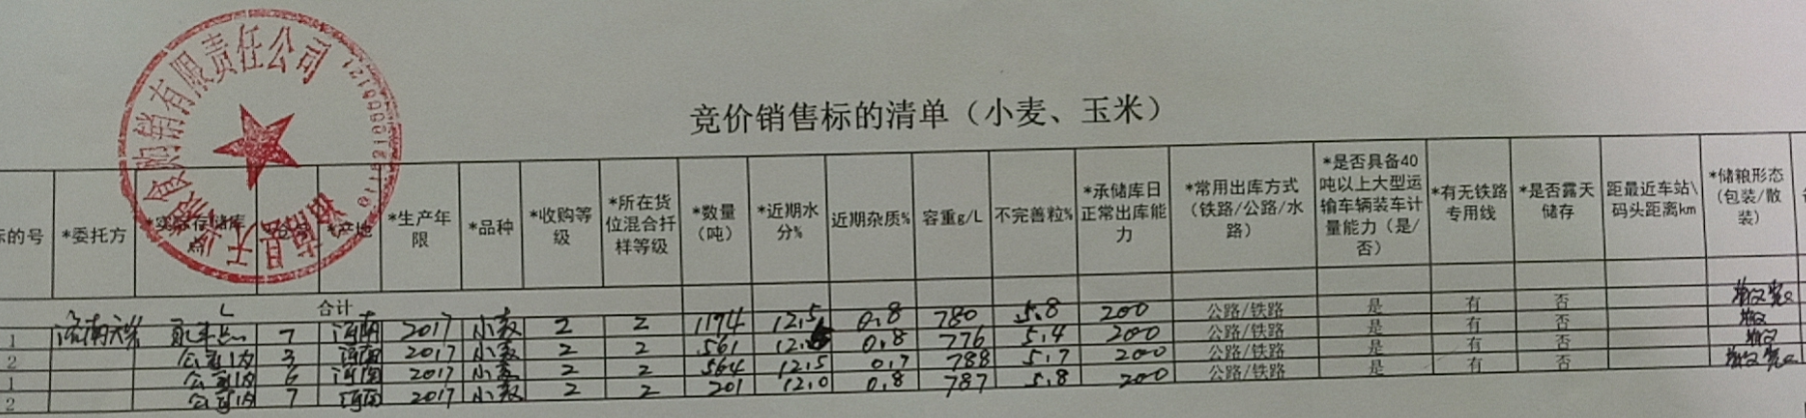 食购销有限责任公司
竞价销售标的清单（小麦、玉米）
的号 *委托方 *实际存储库点 *产地 *生产年限 *品种 *收购等级 *所在货位混合扦样等级 *数量（吨） *近期水分% 近期杂质% 容重g/L 不完善粒% *承储库日正常出库能力 *常用出库方式（铁路/公路/水路） *是否具备40吨以上大型运输车辆装车计量能力（是/否） *有无铁路专用线 *是否露天储存 距最近车站\码头距离km *储粮形态（包装/散装）
合计
1 7 河南 2017 小麦 2 2 1174 12.5 0.8 780 5.8 200 公路/铁路 是 有 否
2 公司内 3 河南 2017 小麦 2 2 561 0.8 776 5.4 200 公路/铁路 是 有 否
1 公司内 6 河南 2017 小麦 2 2 564 12.5 0.7 788 5.7 200 公路/铁路 是 有 否
2 公司内 7 河南 2017 小麦 2 2 201 12.0 0.8 787 5.8 200 公路/铁路 是 有 否